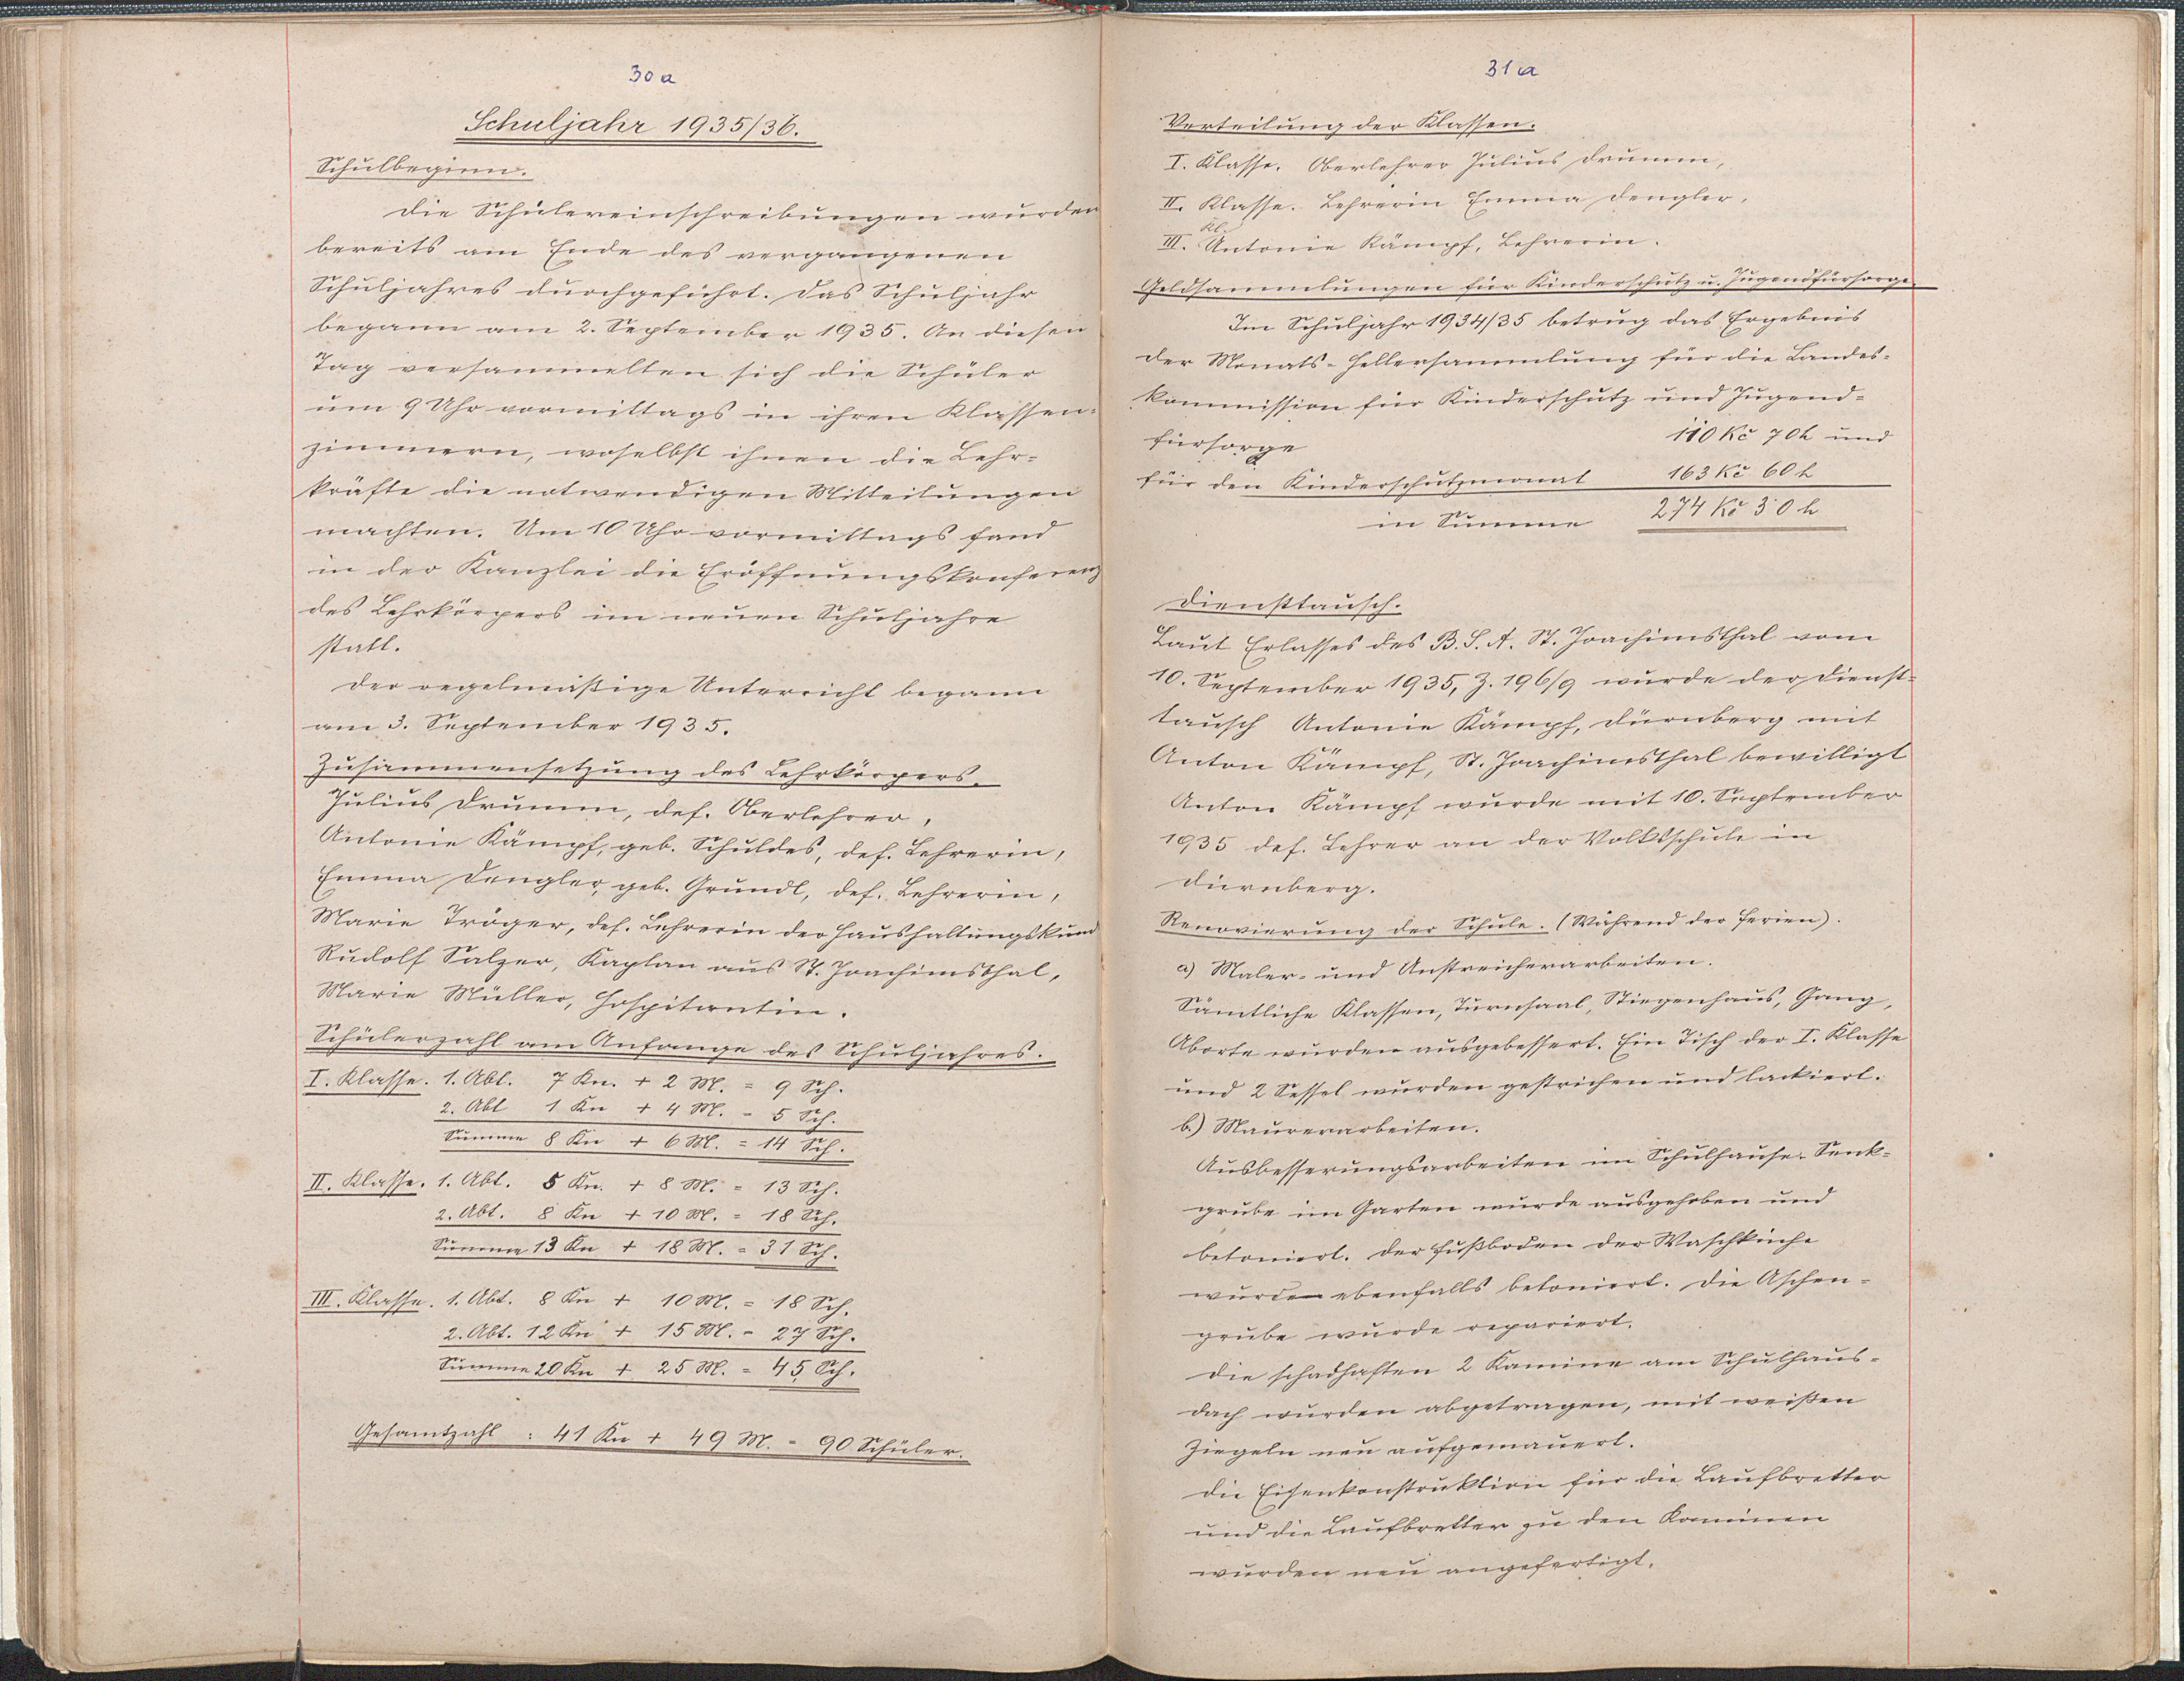 30a
Schuljahr 1935/36.
Schulbeginn.
Die Schülereinschreibungen wurden
bereits am Ende des vergangenen
Schuljahres durchgeführt. Das Schuljahr
begann am 2. September 1935. An diesen
Tag versammelten sich die Schüler
um 9 Uhr vormittags in ihren Klassen-
zimmern, woselbst ihnen die Lehr-
kräfte die notwendigen Mitteilungen
machten. Um 10 Uhr vormittags fand
in der Kanzlei die Eröffnungskonferenz
des Lehrkörpers im neuen Schuljahre
statt.
Der regelmäßige Unterricht begann
am 3. September 1935.
Zusammensetzung des Lehrkörpers.
Julius Drumm, def. Oberlehrer,
Antonie Kämpf, geb. Schuldes, def. Lehrerin,
Emma Dengler, geb. Gründl, def. Lehrerin,
Marie Tröger, def. Lehrerin der Haushaltungskund
Rudolf Salzer, Kaplan aus St. Joachimsthal,
Marie Müller, Hospitantin.
Schülerzahl am Anfange des Schuljahres.
I. Klasse. 1. Abt. 7 Kn. + 2 M. = 9 Sch.
2. Abt 1 Kn + 4 M. = 5 Sch.
Summe 8 Kn + 6 M. = 14 Sch.
II. Klasse. 1. Abt. 5 Kn. + 8 M. = 13 Sch.
2. Abt. 8 Kn + 10 M. = 18 Sch.
Summe 13 Kn + 18 M. = 31 Sch.
III. Klasse. 1. Abt. 8 Kn + 10 M. = 18 Sch.
2. Abt. 12 Kn + 15 M. = 27 Sch.
Summe 20 Kn + 25 M. = 45 Sch.
Gesamtzahl : 41 Kn + 49 M. = 90 Schüler.
31a
Verteilung der Klassen.
I. Klasse. Oberlehrer Julius Drumm,
II. Klasse. Lehrerin Emma Dengler,
III. Kl. Antonie Kämpf, Lehrerin.
Geldsammlungen für Kinderschutz u. Jugendfürsorge.
Im Schuljahr 1934/35 betrug das Ergebnis
der Monats-Hellersammlung für die Landes-
kommission für Kinderschutz und Jugend-
fürsorge 110 Kč 70 h und
für den Kinderschutzmonat 163 Kč 60 h
in Summe 274 Kč 30 h
Diensttausch.
Laut Erlasses des B.S.A. St. Joachimsthal vom
10. September 1935, Z. 196/9 wurde der Dienst-
tausch Antonie Kämpf, Dürnberg mit
Anton Kämpf, St. Joachimsthal bewilligt
Anton Kämpf wurde mit 10. September
1935 def. Lehrer an der Volksschule in
Dürnberg.
Renovierung der Schule. (Während der Ferien).
a) Maler- und Anstreicherarbeiten.
Sämtliche Klassen, Turnsaal, Stiegenhaus, Gang,
Aborte wurden ausgebessert. Ein Tisch der I. Klasse
und 2 Sessel wurden gestrichen und lackiert.
b.) Maurerarbeiten.
Ausbesserungsarbeiten im Schulhause. Senk-
grube im Garten wurde ausgehoben und
betoniert. Der Fußboden der Waschküche
wurde ebenfalls betoniert. Die Aschen-
grube wurde repariert.
Die schadhaften 2 Kamine am Schulhaus-
dach wurden abgetragen, mit weißen
Ziegeln neu aufgemauert.
Die Eisenkonstruktion für die Laufbretter
und die Laufbretter zu den Kaminen
wurden neu angefertigt.